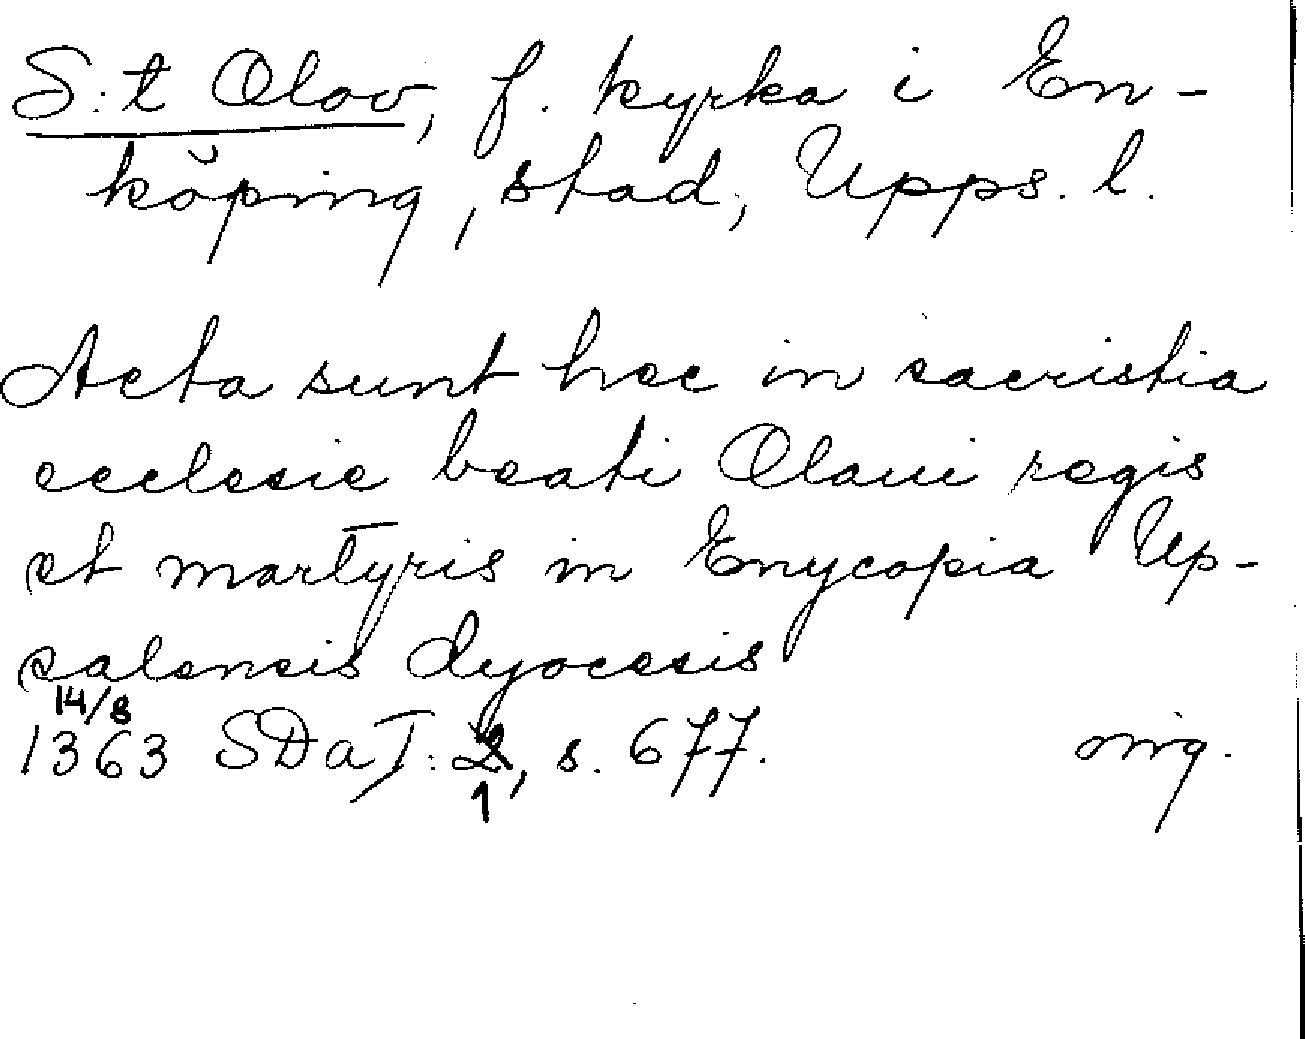 S:t Olov, f. kyrka i En-
köping, stad, Upps. l.
Acta sunt hec in sacristia
ecclesie beati Olaui regis
et martyris in Enycopia Up-
salensis dyocesis
14/8
1363 SD a I: 2, s. 677. orig.
1